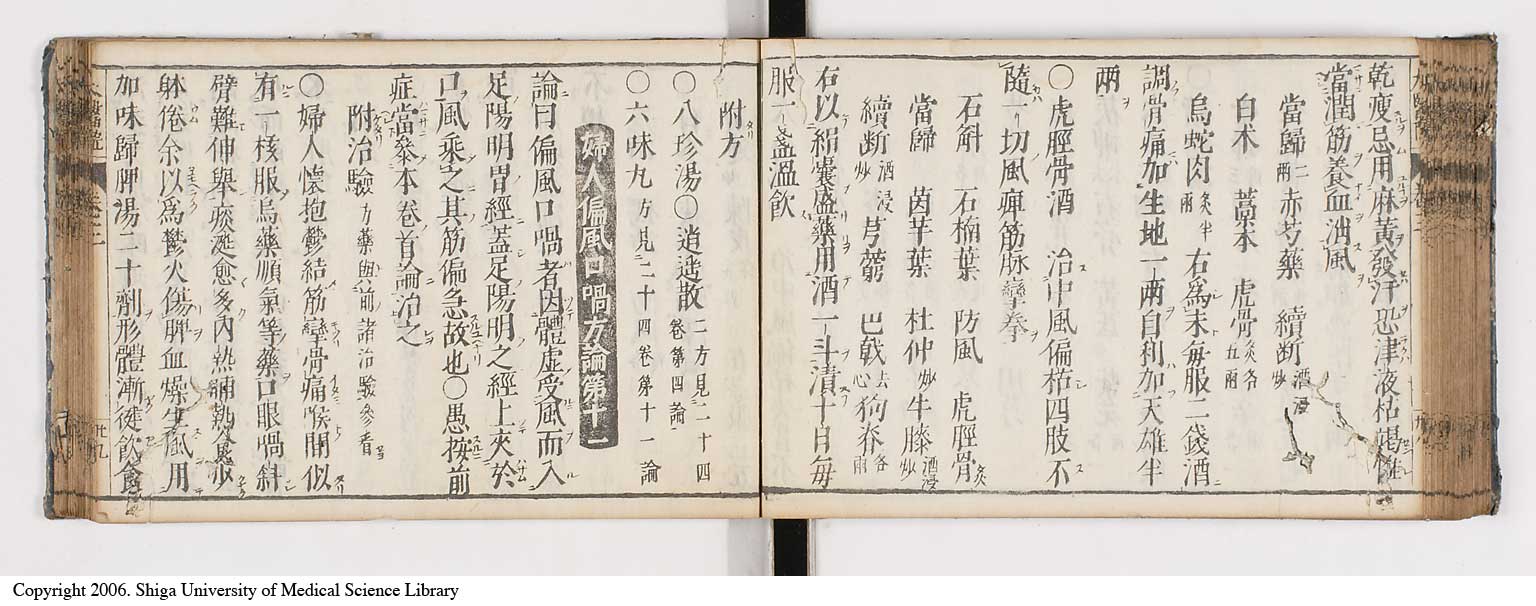 乾瘦忌用麻黃發汗恐津液枯竭惟
當潤筋養血消風
當歸二兩赤芍藥續斷酒浸炒
白术藁本虎骨炙各五兩
烏蛇肉炙半兩右爲末每服二錢酒
調骨痛加生地一兩自利加天雄半
兩
〇虎脛骨酒治中風偏枯四肢不
隨一切風痹筋脉攣拳
石斛石楠葉防風虎脛骨炙
當歸茵芋葉杜仲炒牛膝酒浸炒
續斷酒浸炒芎藭巴戟去心狗脊各兩
右以絹囊盛藥用酒一斗漬十日每
服一盞溫飲
附方
〇八珍湯〇逍遥散二方見二十四卷第四論
〇六味丸方見二十四卷第十一論
婦人偏風口喎方論第十一
論曰偏風口喎者因體虛受風而入
足陽明胃經蓋足陽明之經上夾於
口風乘之其筋偏急故也〇愚按前
症當參本卷首論治之
附治驗方藥與前諸治驗參看
〇婦人懷抱鬱結筋攣骨痛喉間似
有一核服烏藥順氣等藥口眼喎斜
臂難伸舉痰涎愈多內熱晡熱食少
躰倦余以爲鬱火傷脾血燥生風用
加味歸脾湯二十劑形體漸健飲食
卷三
廿九
Copyright 2006. Shiga University of Medical Science Library